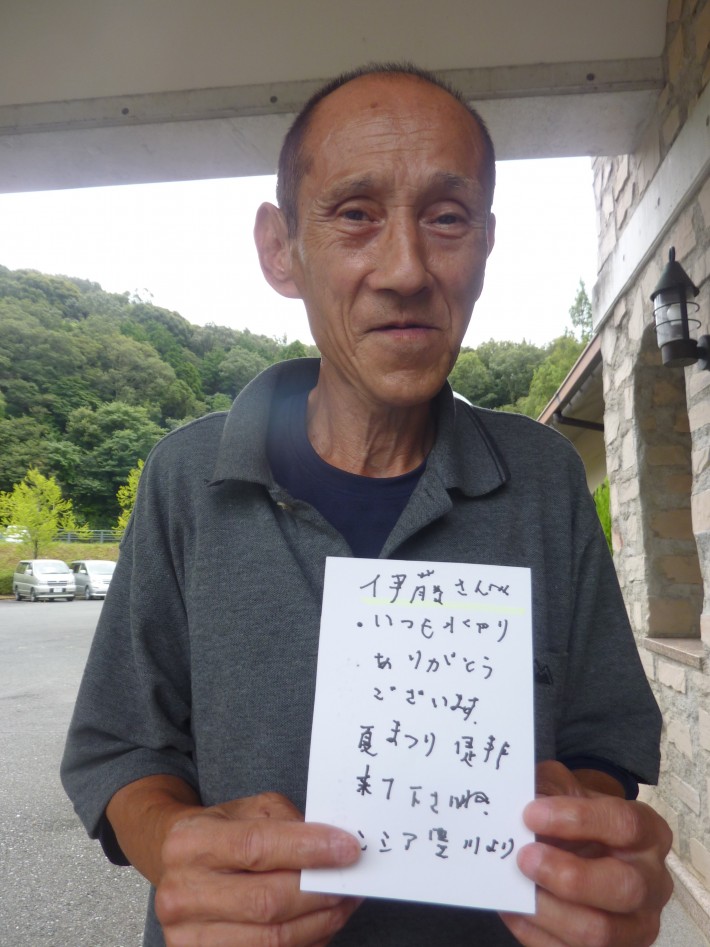 伊藤さんへ
・いつも水やり
ありがとう
ございます。
夏まつり是非
来て下さいね。
シア豊川より